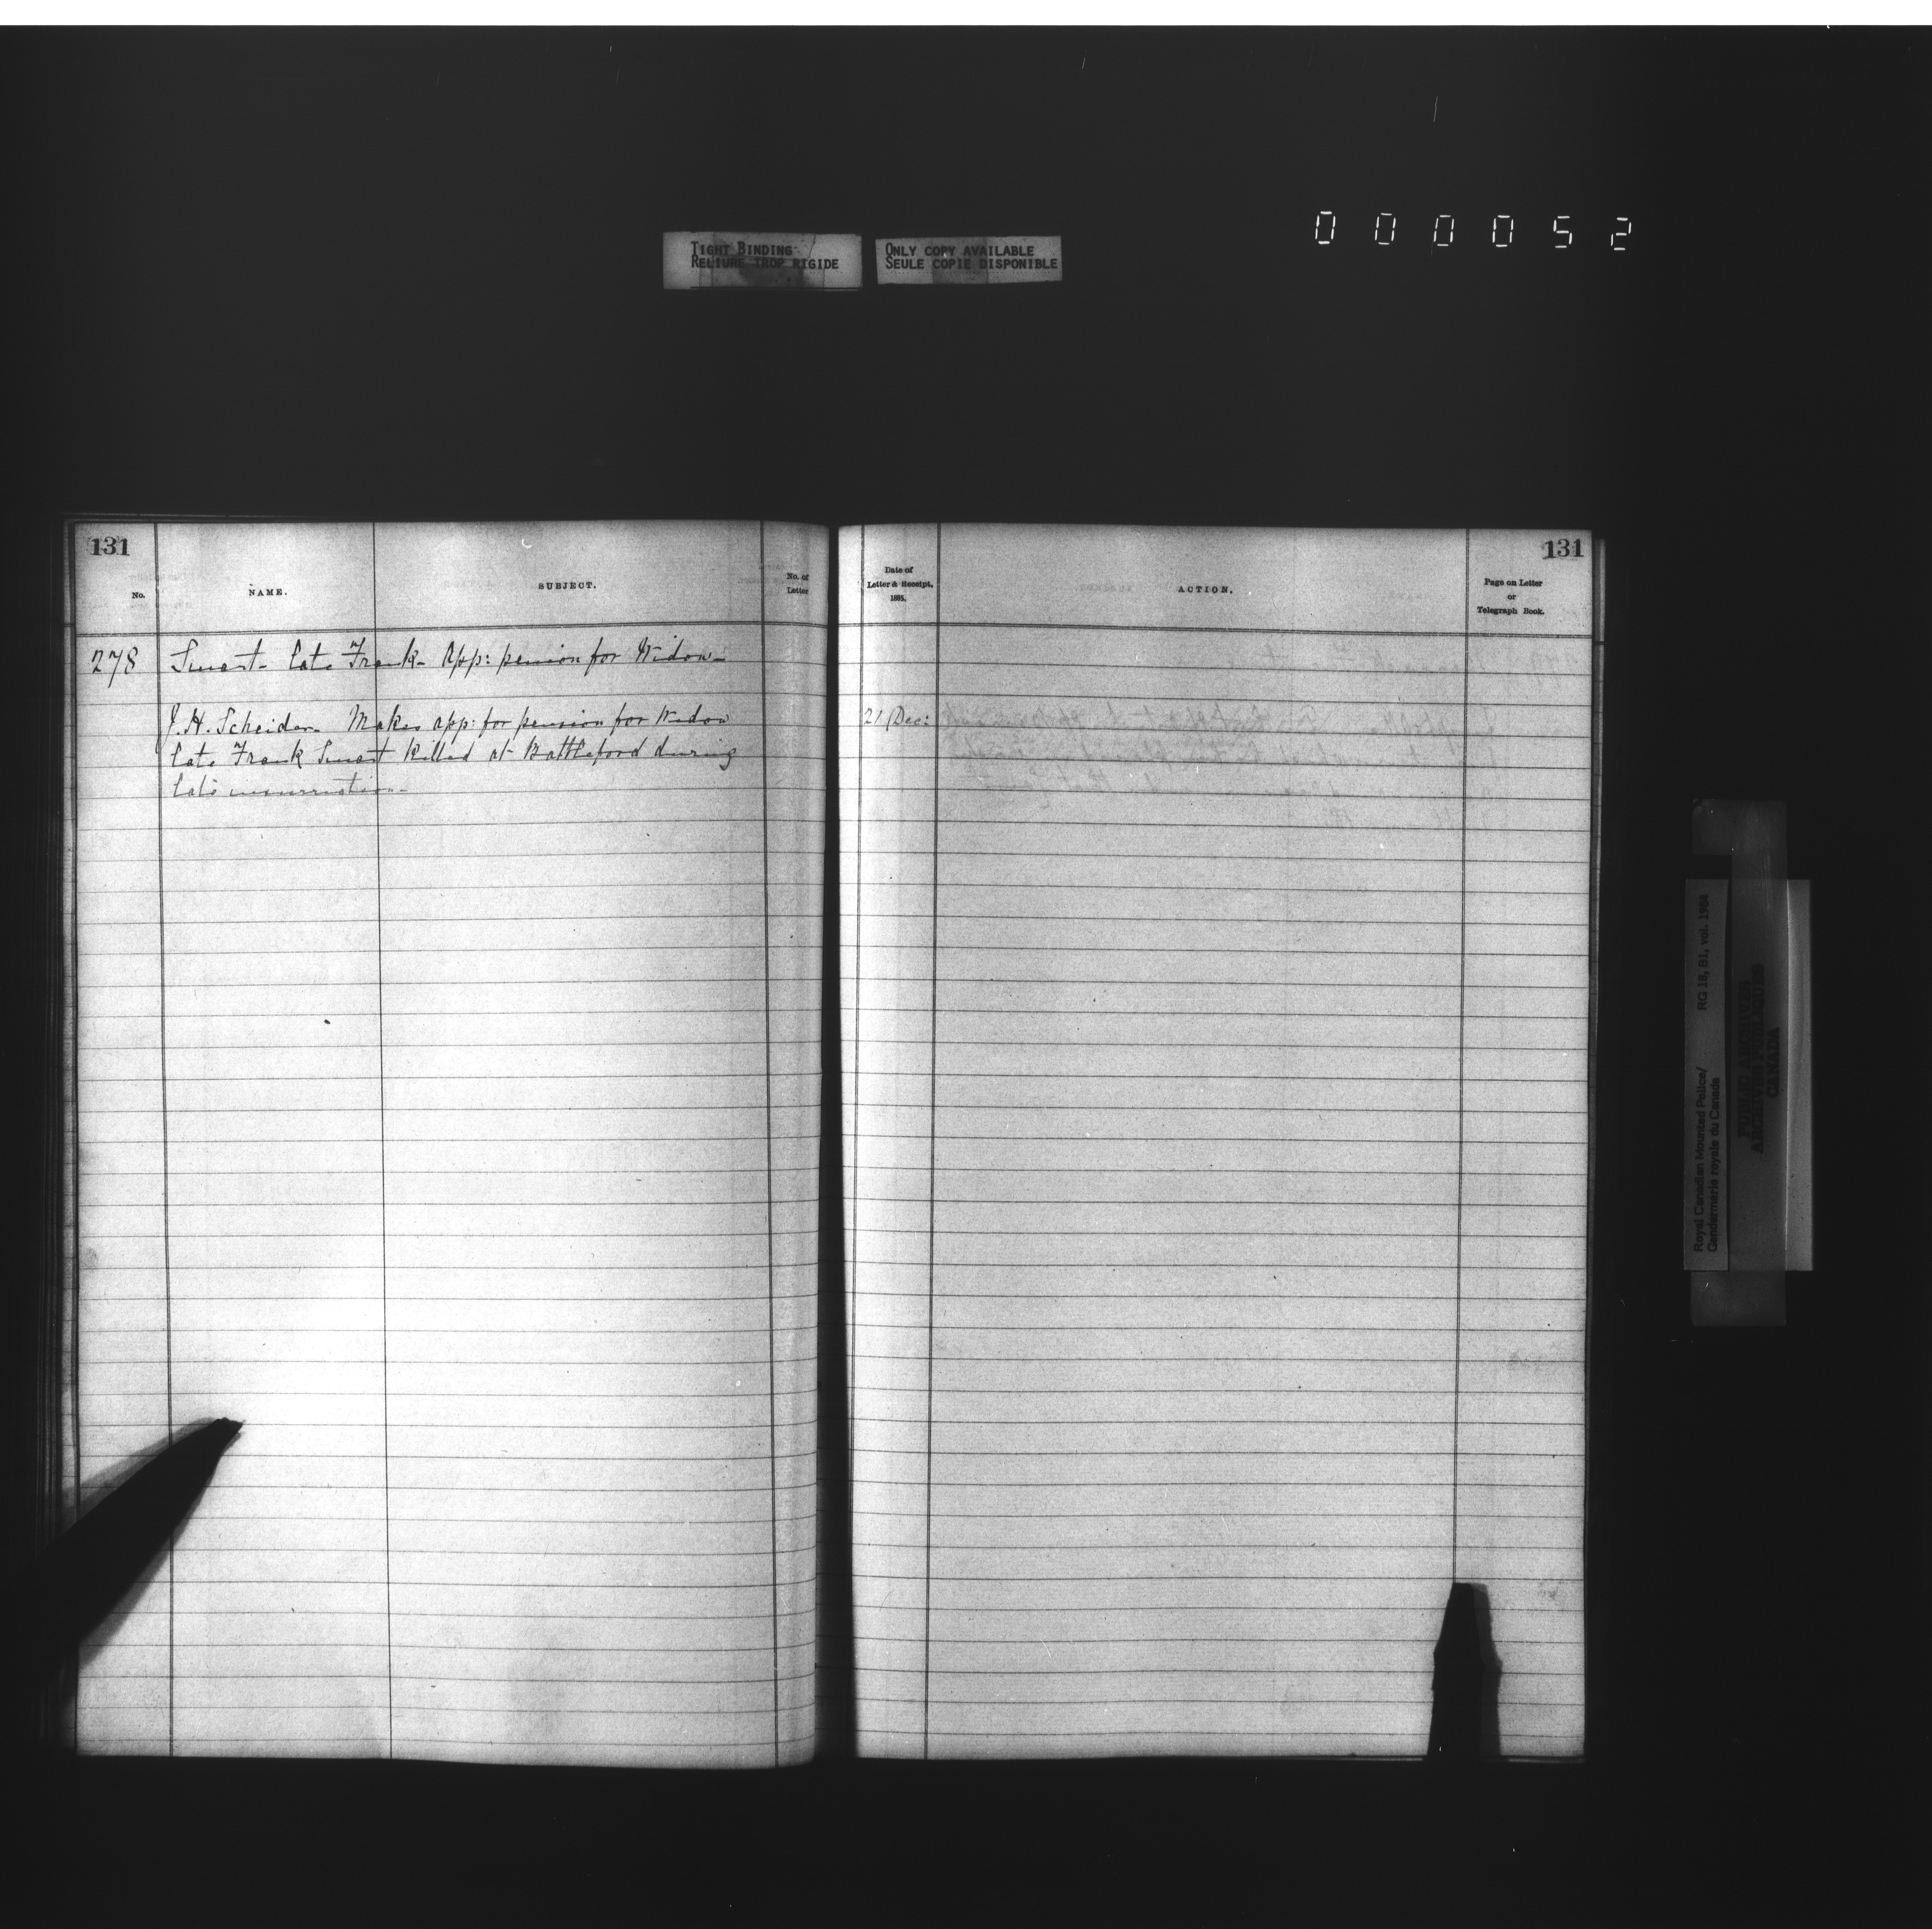 000052
TIGHT BINDING
RELIURE TROP RIGIDE
ONLY COPY AVAILABLE
SEULE COPIE DISPONIBLE
131
No.
NAME.
SUBJECT.
No. of
Letter
278 Smart - late Frank - App: pension for Widow -
J. H. Scheider. Makes app: for pension for Widow
late Frank Smart killed at Battleford during
late insurrection -
131
Date of
Letter & Receipt,
1885.
ACTION.
Page on Letter
or
Telegraph Book.
21 Dec:
Royal Canadian Mounted Police/
Gendarmerie royale du Canada
RG 18, B1, vol. 1984
PUBLIC ARCHIVES
ARCHIVES PUBLIQUES
CANADA